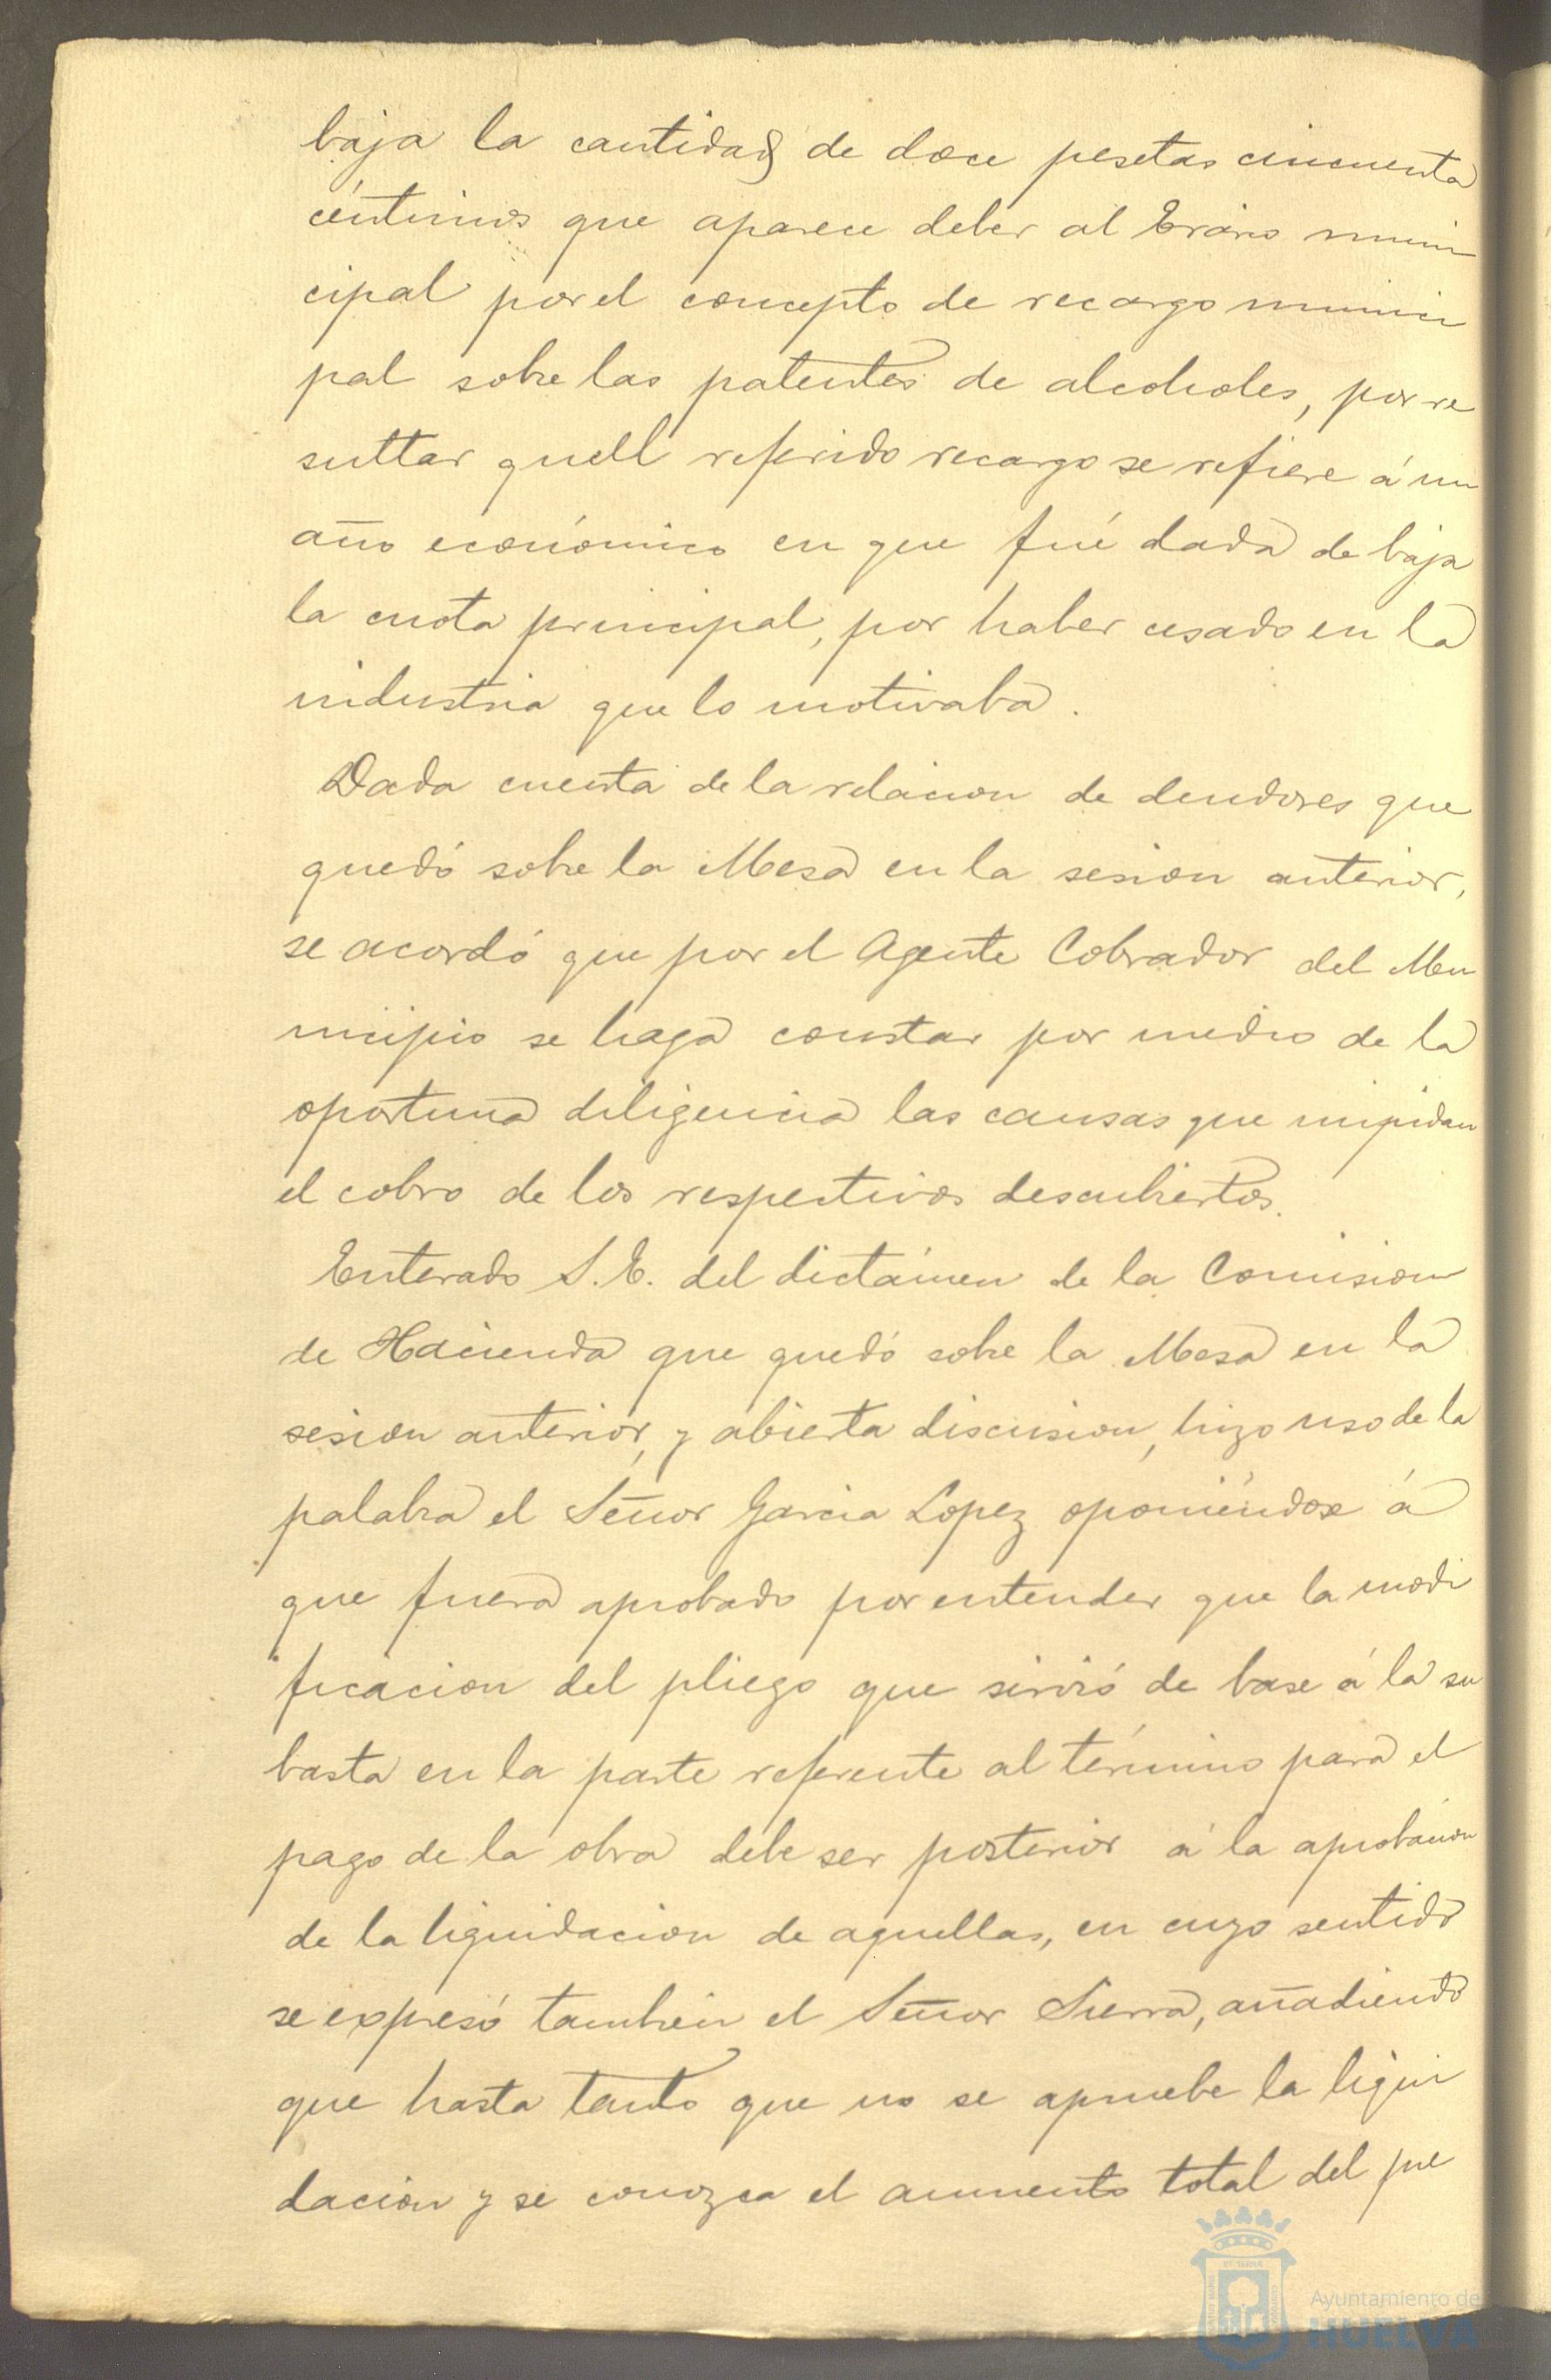 baja la cantidad de doce pesetas cincuenta
céntimos que aparece deber al Erario muni
cipal por el concepto de recargo munici
pal sobre las patentes de alcoholes, por re
sultar quell referido recargo se refiere á un
año económico en que fué dada de baja
la cuota principal, por haber cesado en la
industria que lo motivaba.
Dada cuenta de la relacion de deudores que
quedó sobre la Mesa en la sesion anterior,
se acordó que por el Agente Cobrador del Mu
nicipio se haga constar por medio de la
oportuna diligencia las causas que impidan
el cobro de los respectivos descubiertos.
Enterado S.E. del dictámen de la Comision
de Hacienda que quedó sobre la Mesa en la
sesion anterior, y abierta discusion, hizo uso de la
palabra el Señor Garcia Lopez oponiéndose á
que fuera aprobado por entender que la modi
ficacion del pliego que sirvió de base á la su
basta en la parte referente al término para el
pago de la obra debe ser posterior á la aprobacion
de la liquidacion de aquellas, en cuyo sentido
se expresó tambien el Señor Sierra, añadiendo
que hasta tanto que no se apruebe la liqui
dacion y se conozca el aumento total del pre
Ayuntamiento de
HUELVA